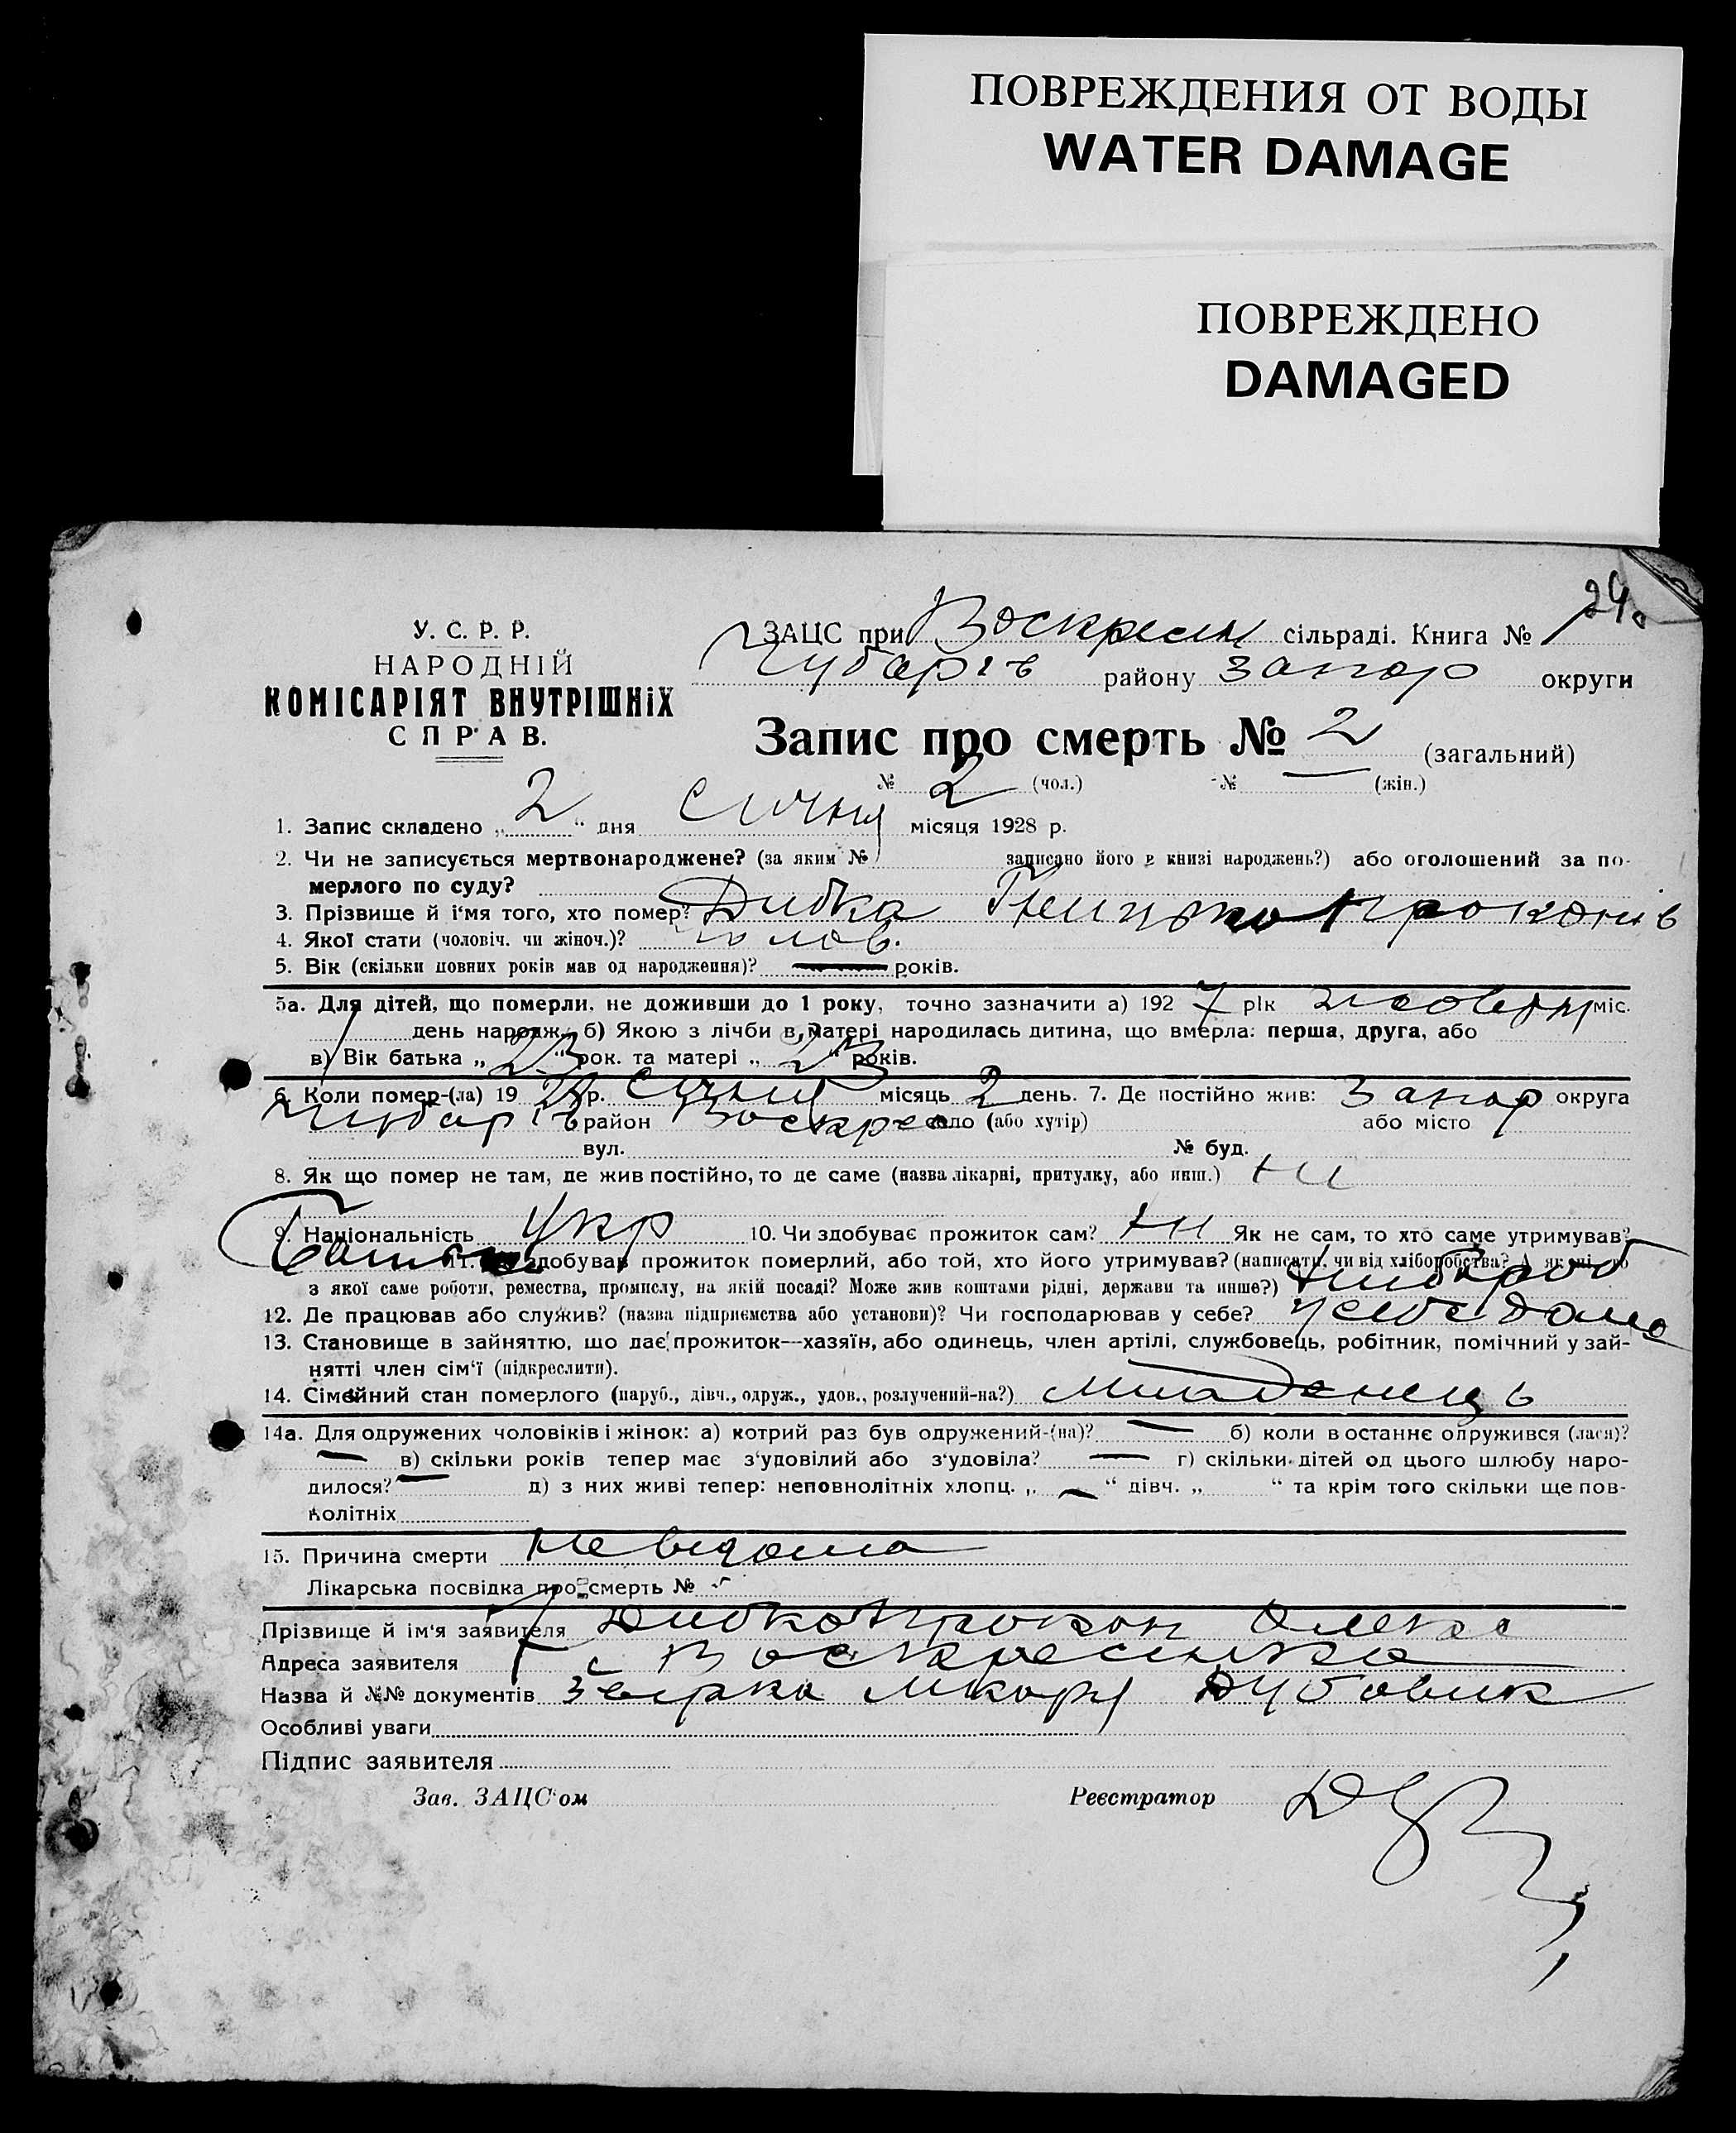 ПОВРЕЖДЕНИЯ ОТ ВОДЫ
WATER DAMAGE
ПОВРЕЖДЕНО
DAMAGED
У. С. Р. Р.
НАРОДНІЙ
КОМІСАРІЯТ ВНУТРІШНІХ
СПРАВ.
ЗАЦС при Воскресен сільраді. Книга № 1
Чубарів району Запор округи
Запис про смерть № 2 (загальний)
№ 2 (чол.) № — (жін.)
1. Запис складено „2“ дня січня місяця 1928 р.
2. Чи не записується мертвонароджене? (за яким № записано його в книзі народжень?) або оголошений за по-
мерлого по суду?
3. Прізвище й і'мя того, хто помер? Дибка
4. Якої стати (чоловіч. чи жіноч.)? чолов.
5. Вік (скільки повних років мав од народження)? років.
5а. Для дітей, що померли, не доживши до 1 року, точно зазначити а) 1927 рік міс.
день народж., б) Якою з лічби в матері народилась дитина, що вмерла: перша, друга, або
в) Вік батька „23“ рок. та матері „23“ років.
6. Коли помер-(ла) 1928 р. січня місяць 2 день. 7. Де постійно жив: Запор округа
Чубарів район Воскрес село (або хутір) або місто
вул. № буд.
8. Як що помер не там, де жив постійно, то де саме (назва лікарні, притулку, або инш.) ні
9. Національність Укр 10. Чи здобуває прожиток сам? ні Як не сам, то хто саме утримував?
11. здобував прожиток померлий, або той, хто його утримував? (написати, чи від хліборобства? А як ні, то
з якої саме роботи, ремества, промислу, на якій посаді? Може жив коштами рідні, держави та инше?) хлибороб
12. Де працював або служив? (назва підприємства або установи)? Чи господарював у себе? у себе дома
13. Становище в зайняттю, що дає прожиток—хазяїн, або одинець, член артілі, службовець, робітник, помічний у зай-
нятті член сім'ї (підкреслити).
14. Сімейний стан померлого (паруб., дівч., одруж., удов., розлучений-на?) младенець
14а. Для одружених чоловіків і жінок: а) котрий раз був одружений-(на)? — б) коли в останнє опружився (лася)?
— в) скільки років тепер має з'удовілий або з'удовіла? — г) скільки дітей од цього шлюбу наро-
дилося? — д) з них живі тепер: неповнолітніх хлопц. „—“ дівч. „ “ та крім того скільки ще пов-
нолітніх
15. Причина смерти невідома
Лікарська посвідка про смерть №
Прізвище й ім'я заявителя Дибка Прокоп Олекс
Адреса заявителя с Воскресенка
Назва й №№ документів Дубовик
Особливі уваги
Підпис заявителя
Зав. ЗАЦС'ом Реєстратор